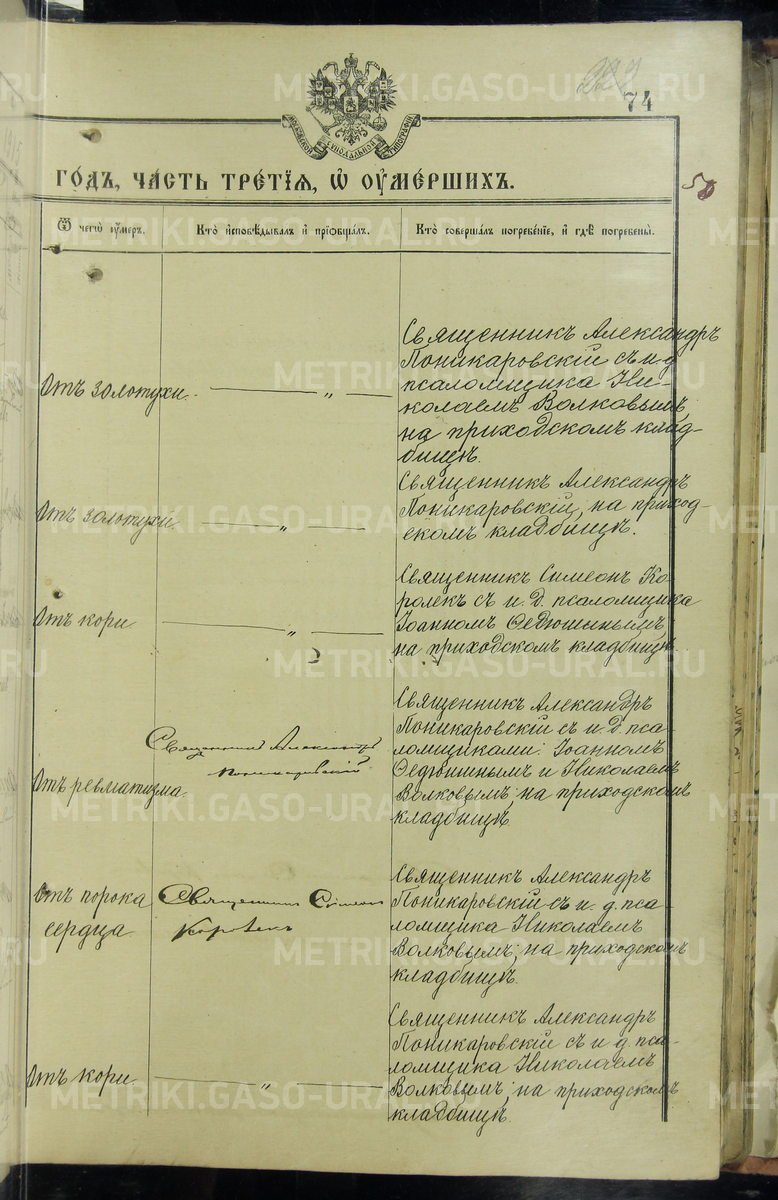 74
МОСКОВСКОЙ СУНОДАЛЬНОЙ ТИПОГРАФІИ
ГО́ДЪ, ЧА́СТЬ ТРЕ́ТІѦ, Ѡ҆ ОУ҆МЕ́РШИХЪ.
Ѿ чегѡ̀ оу҆́меръ.
Кто̀ и҆сповѣ́дывалъ и҆ прїѡбща́лъ.
Кто̀ соверша́лъ погребе́нїе, и҆ гдѣ̀ погребены̀.
Отъ золотухи.
— „ —
Священникъ Александръ
Поникаровскій съ и. д.
псаломщика Ни-
колаемъ Волковымъ,
на приходскомъ клад-
бищѣ.
Отъ золотухи.
— „ —
Священникъ Александръ
Поникаровскій, на приход-
скомъ кладбищѣ.
Отъ кори
— „ —
Священникъ Симеонъ Ко-
ролекъ съ и. д. псаломщика
Іоанномъ Ѳедюшинымъ,
на приходскомъ кладбищѣ.
Отъ ревматизма.
Священникъ Александръ
Поникаровскій
Священникъ Александръ
Поникаровскій съ и. д. пса-
ломщиками: Іоанномъ
Ѳедюшинымъ и Николаемъ
Волковымъ; на приходскомъ
кладбищѣ.
Отъ порока
сердца
Священникъ Симеонъ
Королекъ
Священникъ Александръ
Поникаровскій съ и. д. пса-
ломщика Николаемъ
Волковымъ; на приходскомъ
кладбищѣ.
Отъ кори.
— „ —
Священникъ Александръ
Поникаровскій съ и. д. пса-
ломщика Николаемъ
Волковымъ; на приходскомъ
кладбищѣ.
METRIKI.GASO-URAL.RU